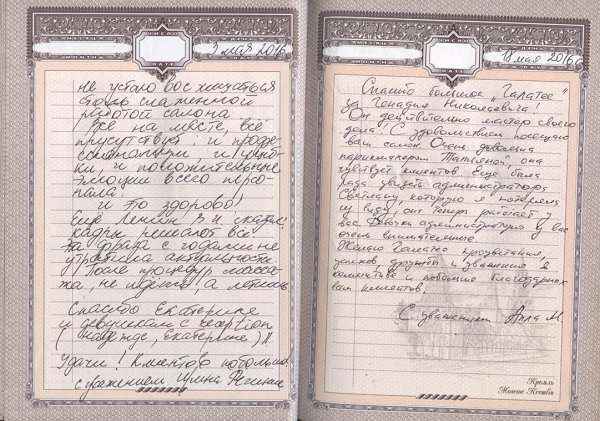 3 мая 2016
не устаю восхищаться
столь слаженной
работой салона
Все на месте, всё
присутствует: и профес-
сионализм, и улыб-
ки, и положительные
эмоции всего персо-
нала.
и это здорово!
Ещё Ленин В.И. сказал:
кадры решают всё
эта фраза с годами не
утратила актуальности
После процедур масса-
жа, не идёшь, а летишь
Спасибо Екатерине
и девушкам с reception
(Надежде, Екатерине)!!
Удачи! Клиентов побольше
с уважением Ирина
18 мая 2016 г
Спасибо большое "Галатее"
за Генадия Николаевича!
Он действительно мастер своего
дела! С удовольствием посещаю
ваш салон. Очень довольна
парикмахером Татьяной, она
чувствует клиентов. Еще была
рада увидеть администратора
Светлану, которую я потеряла
из виду, он теперь работает у
вас. Девочки администраторы у вас
очень внимательные.
Желаю Галатее процветания,
успехов, дружбы и уважения в
коллективе и побольше благодарных
вам клиентов.
С уважением Алла М.
Кремль
Moscow Kremlin